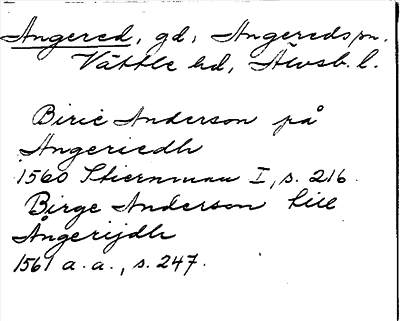 Angered, gd, Angereds sn.
Vättle hd, Älvsb. l.
Birie Anderson på
Angeriedh
1560 Stiernman I, s. 216.
Birge Anderson till
Ångerijdh
1561 a. a., s. 247.